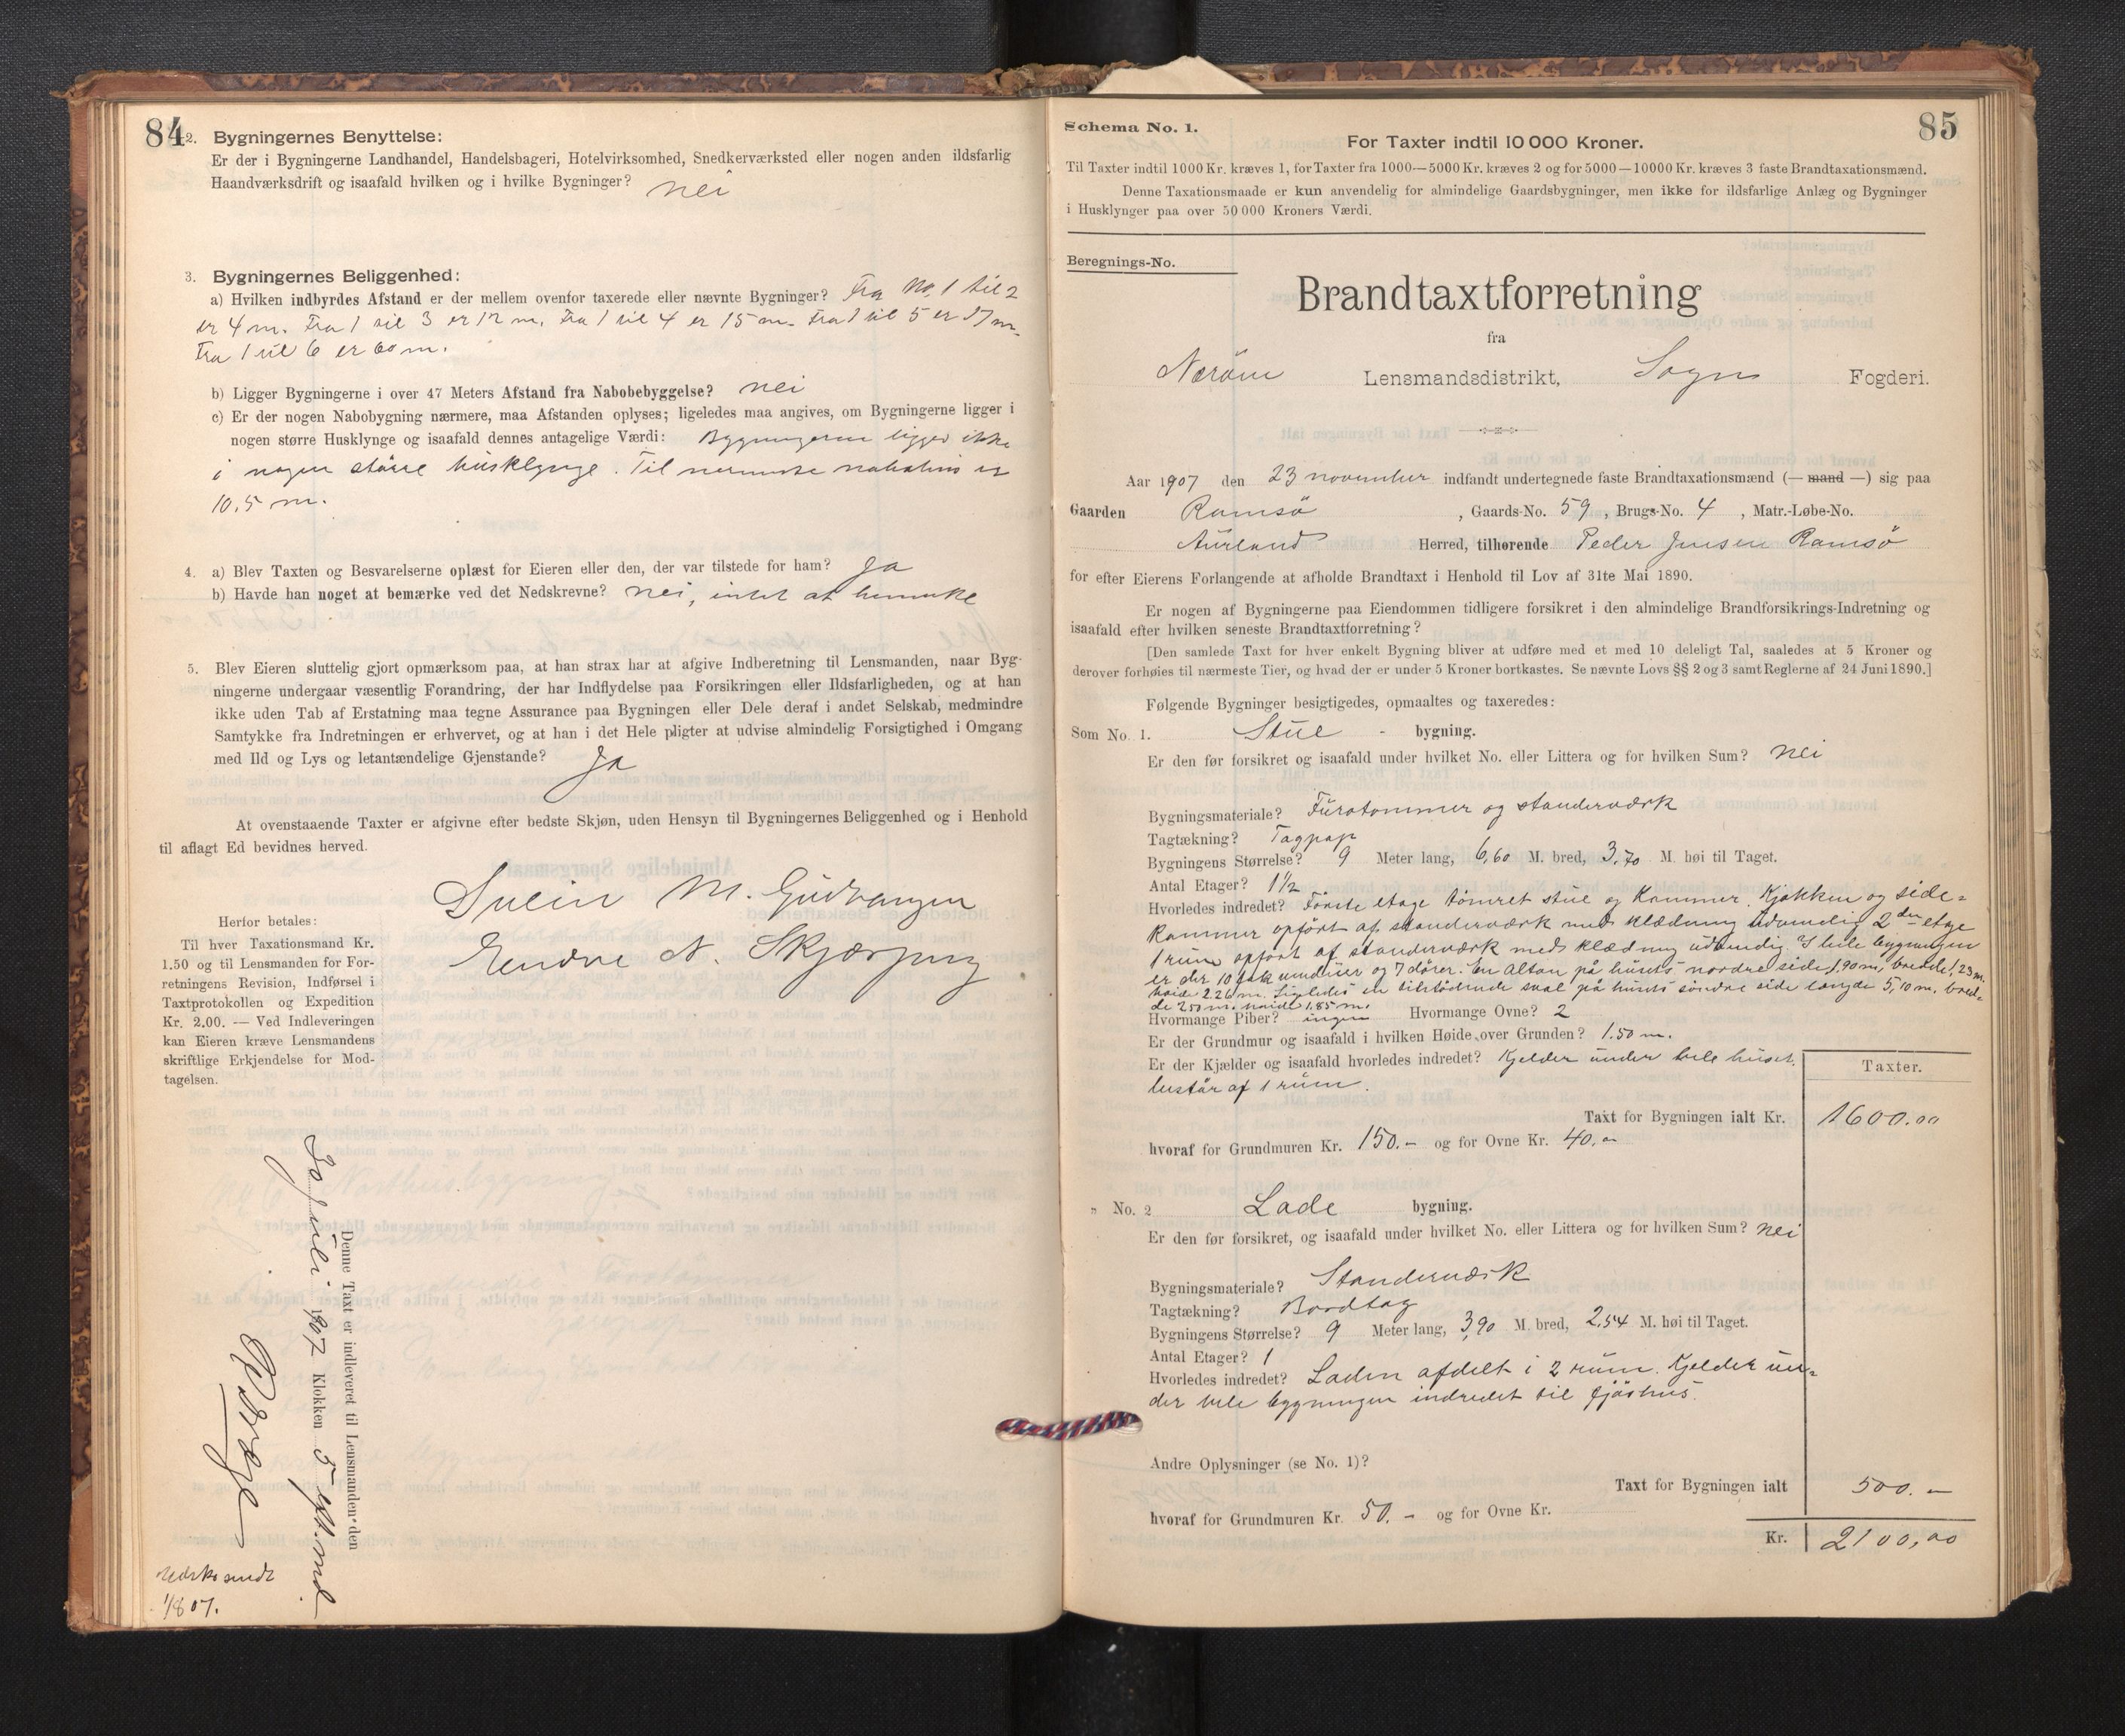 84
2. Bygningernes Benyttelse:
Er der i Bygningerne Landhandel, Handelsbageri, Hotelvirksomhed, Snedkerværksted eller nogen anden ildsfarlig
Haandværksdrift og isaafald hvilken og i hvilke Bygninger? nei
3. Bygningernes Beliggenhed:
a) Hvilken indbyrdes Afstand er der mellem ovenfor taxerede eller nævnte Bygninger? Fra No. 1 til 2
er 4 m. Fra 1 til 3 er 12 m. Fra 1 til 4 er 15 m. Fra 1 til 5 er 17 m.
Fra 1 til 6 er 60 m.
b) Ligger Bygningerne i over 47 Meters Afstand fra Nabobebyggelse? nei
c) Er der nogen Nabobygning nærmere, maa Afstanden oplyses; ligeledes maa angives, om Bygningerne ligger i
nogen større Husklynge og isaafald dennes antagelige Værdi: Bygningerne ligger ikke
i nogen större husklynge. Til nermeste nabohus er
10,5 m.
4. a) Blev Taxten og Besvarelserne oplæst for Eieren eller den, der var tilstede for ham? Ja
b) Havde han noget at bemærke ved det Nedskrevne? nei, intet at bemerke
5. Blev Eieren sluttelig gjort opmærksom paa, at han strax har at afgive Indberetning til Lensmanden, naar Byg-
ningerne undergaar væsentlig Forandring, der har Indflydelse paa Forsikringen eller Ildsfarligheden, og at han
ikke uden Tab af Erstatning maa tegne Assurance paa Bygningen eller Dele deraf i andet Selskab, medmindre
Samtykke fra Indretningen er erhvervet, og at han i det Hele pligter at udvise almindelig Forsigtighed i Omgang
med Ild og Lys og letantændelige Gjenstande? Ja
At ovenstaaende Taxter er afgivne efter bedste Skjøn, uden Hensyn til Bygningernes Beliggenhed og i Henhold
til aflagt Ed bevidnes herved.
M. Gudvangen
Endre N. Skjærping
Herfor betales:
Til hver Taxationsmand Kr.
1.50 og til Lensmanden for For-
retningens Revision, Indførsel i
Taxtprotokollen og Expedition
Kr. 2.00. — Ved Indleveringen
kan Eieren kræve Lensmandens
skriftlige Erkjendelse for Mod-
tagelsen.
Denne Taxt er indleveret til Lensmanden den
juli 1907 Klokken 5 eft.md.
1/8 07.
85
Schema No. 1.
For Taxter indtil 10 000 Kroner.
Til Taxter indtil 1000 Kr. kræves 1, for Taxter fra 1000—5000 Kr. kræves 2 og for 5000—10000 Kr. kræves 3 faste Brandtaxationsmænd.
Denne Taxationsmaade er kun anvendelig for almindelige Gaardsbygninger, men ikke for ildsfarlige Anlæg og Bygninger
i Husklynger paa over 50 000 Kroners Værdi.
Beregnings-No.
Brandtaxtforretning
fra
Neröen Lensmandsdistrikt, Sogn Fogderi.
Aar 1907 den 23 november indfandt undertegnede faste Brandtaxationsmænd (— mand —) sig paa
Gaarden Ramsö , Gaards-No. 59 , Brugs-No. 4 , Matr.-Løbe-No.
Aurland Herred, tilhørende Peder Jensen Ramsö
for efter Eierens Forlangende at afholde Brandtaxt i Henhold til Lov af 31te Mai 1890.
Er nogen af Bygningerne paa Eiendommen tidligere forsikret i den almindelige Brandforsikrings-Indretning og
isaafald efter hvilken seneste Brandtaxtforretning?
[Den samlede Taxt for hver enkelt Bygning bliver at udføre med et med 10 deleligt Tal, saaledes at 5 Kroner og
derover forhøies til nærmeste Tier, og hvad der er under 5 Kroner bortkastes. Se nævnte Lovs §§ 2 og 3 samt Reglerne af 24 Juni 1890.]
Følgende Bygninger besigtigedes, opmaaltes og taxeredes:
Som No. 1. Stue - bygning.
Er den før forsikret og isaafald under hvilket No. eller Littera og for hvilken Sum? nei
Bygningsmateriale? Furutömmer og standerværk
Tagtækning? Tagpap
Bygningens Størrelse? 9 Meter lang, 6,60 M. bred, 3,70 M. høi til Taget.
Antal Etager? 1 1/2
Hvorledes indredet? Förste etage tömret stue og Kammer. Kjøkken og side-
kammer opfört af standerværk med klædning udvendig 2den etage
1 rum opfört af standerværk med klædning udvendig. I hele bygningen
er der 10 fak vinduer og 7 dører. En Altan på husets nordre side 1,90 m, bredde 1,23 m.
höide 2,26 m. Ligeledes en tilstödende sval på husets söndre side længde 5,10 m. bred-
de 2,50 m. höide 1,85 m.
Hvormange Piber? ingen Hvormange Ovne? 2
Er der Grundmur og isaafald i hvilken Høide over Grunden? 1.50 m.
Er der Kjælder og isaafald hvorledes indredet? Kjelder under hele huset.
består af 1 rum.
Taxter.
Taxt for Bygningen ialt Kr. 1600.00
hvoraf for Grundmuren Kr. 150.- og for Ovne Kr. 40.-
" No. 2 Lade bygning.
Er den før forsikret, og isaafald under hvilket No. eller Littera og for hvilken Sum? nei
Bygningsmateriale? Standerværk
Tagtækning? Bordtag
Bygningens Størrelse? 9 Meter lang, 3,90 M. bred, 2,54 M. høi til Taget.
Antal Etager? 1
Hvorledes indredet? Laden afdelt i 2 rum. Kjelder un-
der hele bygningen indredet til fjöshus.
Andre Oplysninger (se No. 1)?
Taxt for Bygningen ialt 500.-
hvoraf for Grundmuren Kr. 50.- og for Ovne Kr.
Kr. 2100,00